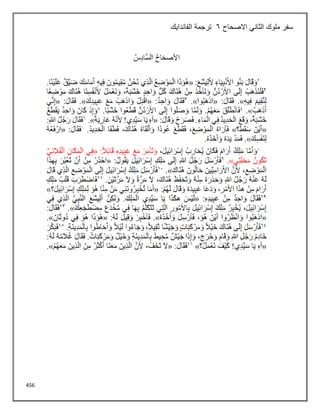 سفر ملوك الثاني الاصحاح ٦ ترجمة الفاندايك
الأصحَاحُ السَّادِسُ
١وَقَالَ بَنُو الأَنْبِيَاءِ لأَلِيشَعَ: «هُوَذَا الْمَوْضِعُ الَّذِي نَحْنُ مُقِيمُونَ فِيهِ أَمَامَكَ ضَيِّقٌ عَلَيْنَا.
٢فَلْنَذْهَبْ إِلَى الأُرْدُنِّ وَنَأْخُذْ مِنْ هُنَاكَ كُلُّ وَاحِدٍ خَشَبَةً، وَنَعْمَلْ لأَنْفُسِنَا هُنَاكَ مَوْضِعًا
لِنُقِيمَ فِيهِ». فَقَالَ: «اذْهَبُوا». ٣فَقَالَ وَاحِدٌ: «اقْبَلْ وَاذْهَبْ مَعَ عَبِيدِكَ». فَقَالَ: «إِنِّي
أَذْهَبُ». ٤فَانْطَلَقَ مَعَهُمْ. وَلَمَّا وَصَلُوا إِلَى الأُرْدُنِّ قَطَعُوا خَشَبًا. ٥وَإِذْ كَانَ وَاحِدٌ يَقْطَعُ
خَشَبَةً، وَقَعَ الْحَدِيدُ فِي الْمَاءِ. فَصَرَخَ وَقَالَ: «آهِ يَا سَيِّدِي! لأَنَّهُ عَارِيَةٌ». ٦فَقَالَ رَجُلُ اللهِ:
«أَيْنَ سَقَطَ؟» فَأَرَاهُ الْمَوْضِعَ، فَقَطَعَ عُودًا وَأَلْقَاهُ هُنَاكَ، فَطَفَا الْحَدِيدُ. ٧فَقَالَ: «ارْفَعْهُ
لِنَفْسِكَ». فَمَدَّ يَدَهُ وَأَخَذَهُ.
٨وَأَمَّا مَلِكُ أَرَامَ فَكَانَ يُحَارِبُ إِسْرَائِيلَ، وَتَآمَرَ مَعَ عَبِيدِهِ قَائِلاً: «فِي الْمَكَانِ الْفُلاَنِيِّ
تَكُونُ مَحَلَّتِي». ٩فَأَرْسَلَ رَجُلُ اللهِ إِلَى مَلِكِ إِسْرَائِيلَ يَقُولُ: «احْذَرْ مِنْ أَنْ تَعْبُرَ بِهذَا
الْمَوْضِعِ، لأَنَّ الأَرَامِيِّينَ حَالُّونَ هُنَاكَ». ١٠فَأَرْسَلَ مَلِكُ إِسْرَائِيلَ إِلَى الْمَوْضِعِ الَّذِي قَالَ
لَهُ عَنْهُ رَجُلُ اللهِ وَحَذَّرَهُ مِنْهُ وَتَحَفَّظَ هُنَاكَ، لاَ مَرَّةً وَلاَ مَرَّتَيْنِ. ١١فَاضْطَرَبَ قَلْبُ مَلِكِ
أَرَامَ مِنْ هذَا الأَمْرِ، وَدَعَا عَبِيدَهُ وَقَالَ لَهُمْ: «أَمَا تُخْبِرُونَنِي مَنْ مِنَّا هُوَ لِمَلِكِ إِسْرَائِيلَ؟»
١٢فَقَالَ وَاحِدٌ مِنْ عَبِيدِهِ: «لَيْسَ هكَذَا يَا سَيِّدِي الْمَلِكَ. وَلكِنَّ أَلِيشَعَ النَّبِيَّ الَّذِي فِي
إِسْرَائِيلَ، يُخْبِرُ مَلِكَ إِسْرَائِيلَ بِالأُمُورِ الَّتِي تَتَكَلَّمُ بِهَا فِي مُخْدَعِ مِضْطَجَعِكَ». ١٣فَقَالَ:
«اذْهَبُوا وَانْظُرُوا أَيْنَ هُوَ، فَأُرْسِلَ وَآخُذَهُ». فَأُخْبِرَ وَقِيلَ لَهُ: «هُوَذَا هُوَ فِي دُوثَانَ».
١٤فَأَرْسَلَ إِلَى هُنَاكَ خَيْلاً وَمَرْكَبَاتٍ وَجَيْشًا ثَقِيلاً، وَجَاءُوا لَيْلاً وَأَحَاطُوا بِالْمَدِينَةِ. ١٥فَبَكَّرَ
خَادِمُ رَجُلِ اللهِ وَقَامَ وَخَرَجَ، وَإِذَا جَيْشٌ مُحِيطٌ بِالْمَدِينَةِ وَخَيْلٌ وَمَرْكَبَاتٌ. فَقَالَ غُلاَمُهُ لَهُ:
«آهِ يَا سَيِّدِي! كَيْفَ نَعْمَلُ؟» ١٦فَقَالَ: «لاَ تَخَفْ، لأَنَّ الَّذِينَ مَعَنَا أَكْثَرُ مِنَ الَّذِينَ مَعَهُمْ».
456